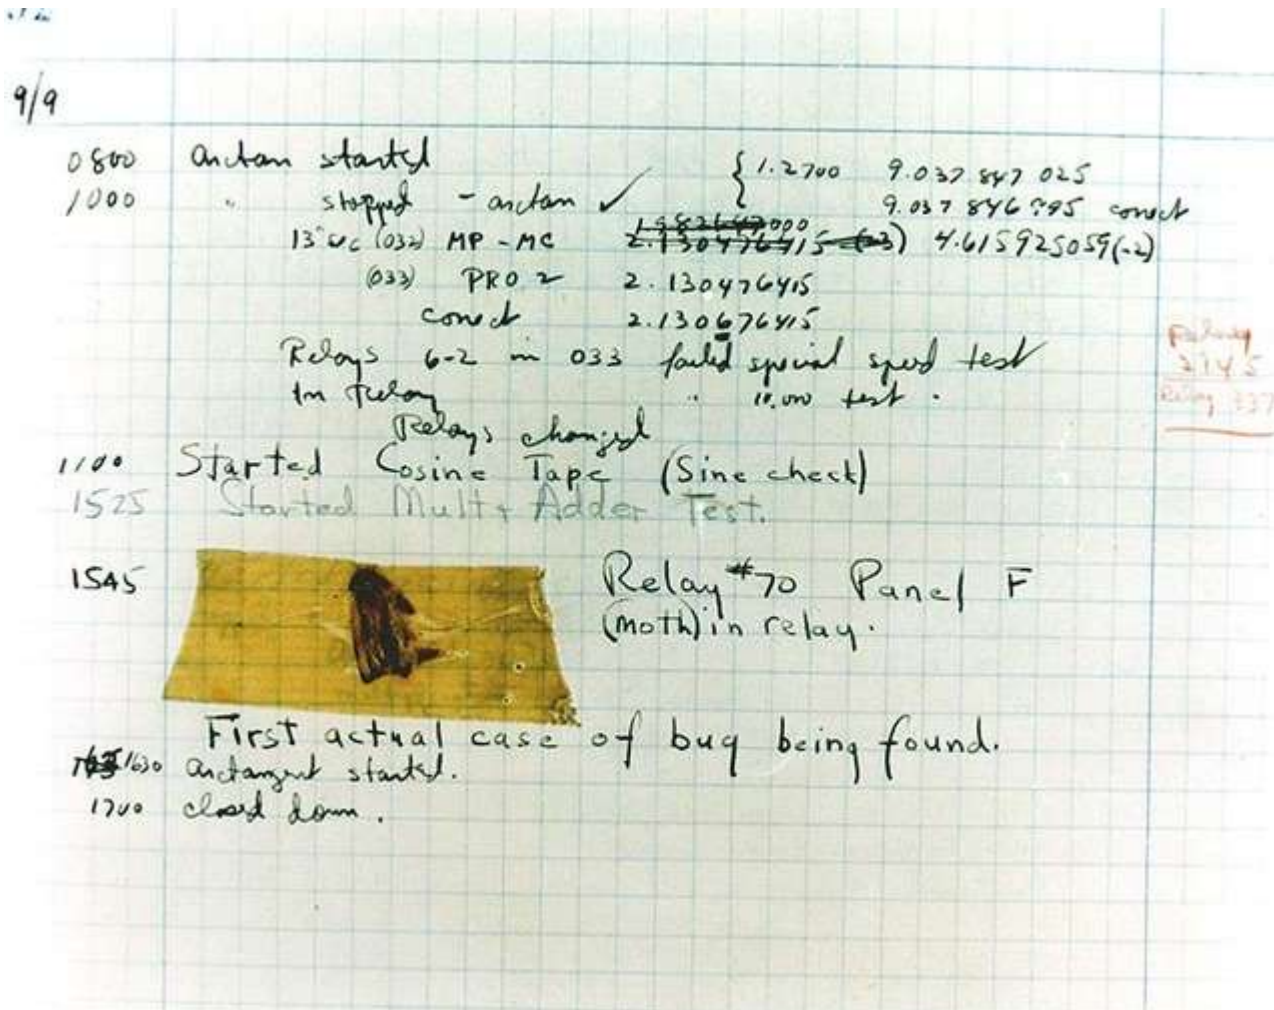 9/9
0800 Antan started { 1.2700 9.037 847 025
1000 " stopped - antan ✓ 9.037 846 995 correct
13"uc (032) MP - MC 2.130476415 (-3) 4.615925059(-2)
(033) PRO 2 2.130476415
correct 2.130676415
Relays 6-2 in 033 failed special speed test
In Relay " 10,000 test .
Relays changed
1100 Started Cosine Tape (Sine check)
1525 Started Mult + Adder Test.
1545 Relay #70 Panel F
(moth) in relay.
First actual case of bug being found.
1630 Arctangent started.
1700 closed down .
Relay
2145
Relay 337